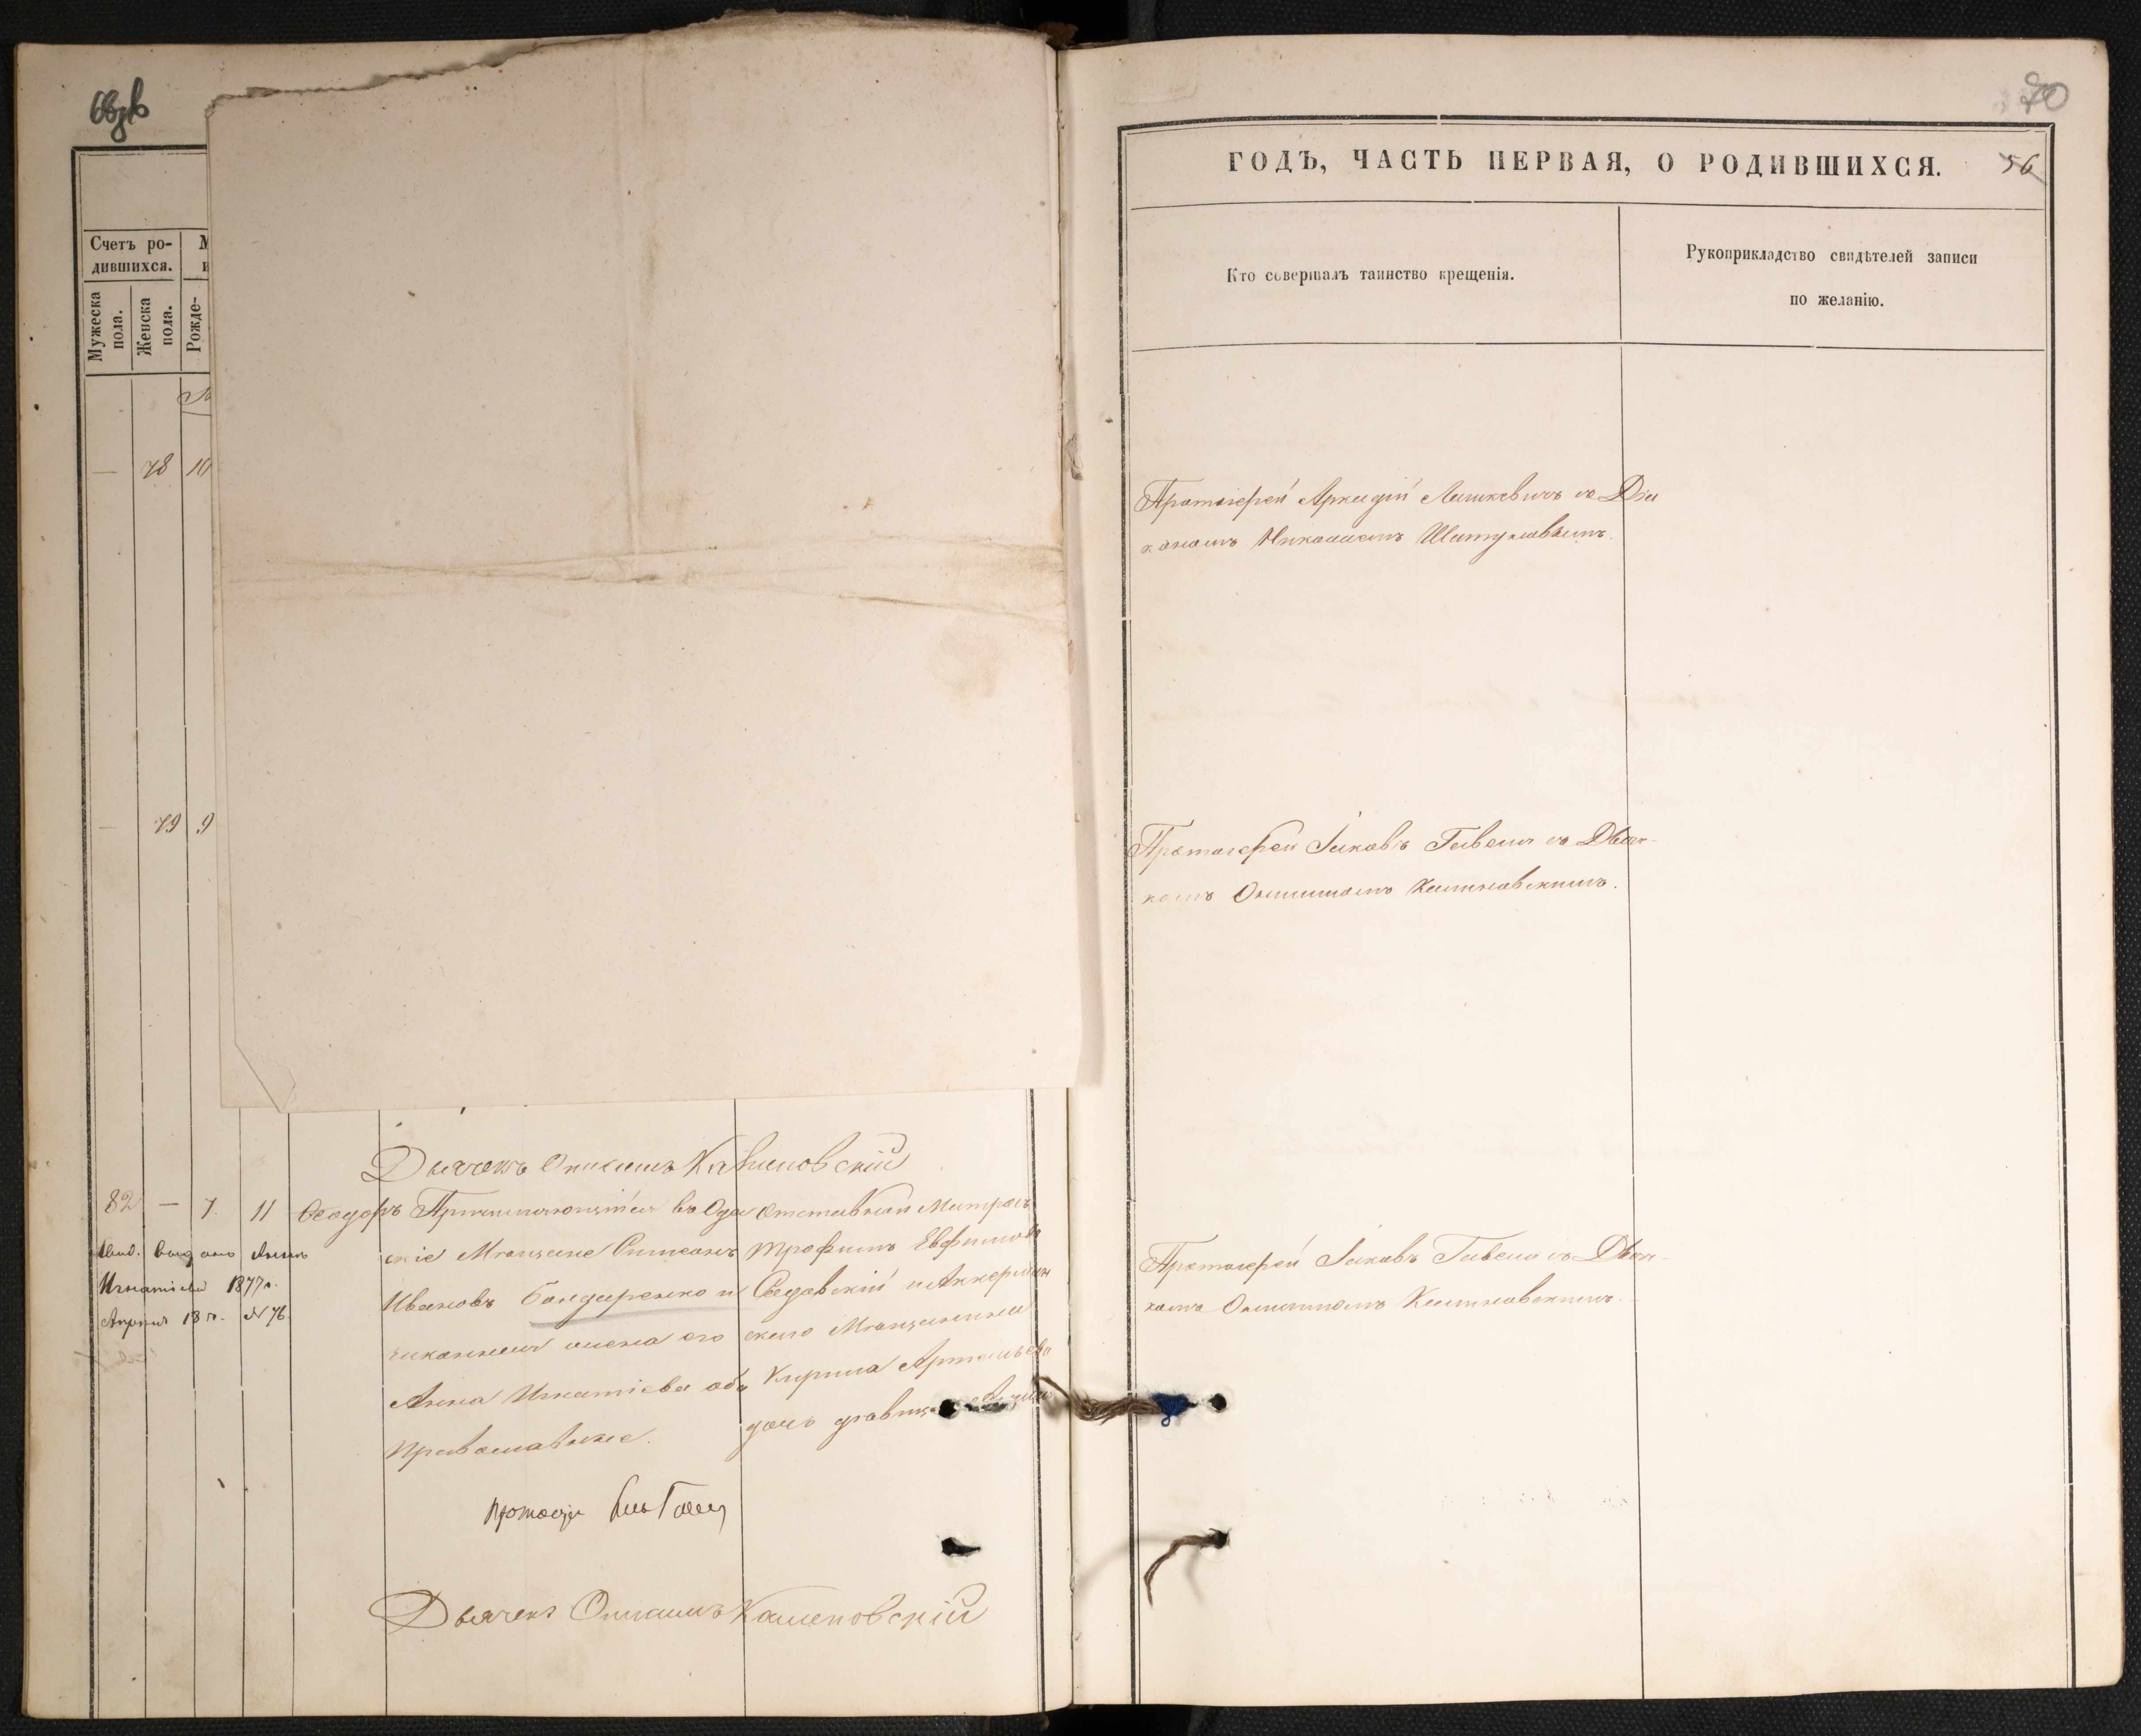 Счетъ ро-
дившихся.
Мужеска
пола.
Женска
пола.
Рожде-
— 78 10
— 79 9
Дьячекъ Онисимъ Калиновскій
82 — 7. 11 Ѳеодоръ
Причисляющійся въ Оде
скіе Мѣщане Симеонъ
Ивановъ Бондаренко и
законная жена его
Анна Игнатіева оба
Православные.
Отставной Матрозъ
Трофимъ Евфимовъ
Седовскій и Аккерман
скаго Мѣщанина
Кирила Артемьева
дочь дѣвица
Свид. выдано Аннѣ
Игнатіевой 1877 г.
Апреля 18 д. № 76.
Дьячекъ Онисимъ Калиновскій
70
ГОДЪ, ЧАСТЬ ПЕРВАЯ, О РОДИВШИХСЯ. 56
Кто совершалъ таинство крещенія.
Рукоприкладство свидѣтелей записи
по желанію.
Протоіерей Аркадій Лашкевичъ съ Діа
кономъ Николаемъ
Протоіерей Іаковъ Гавель съ Дьяч-
комъ Онисимомъ Калиновскимъ.
Протоіерей Іаковъ Гавель съ Дьяч-
комъ Онисимомъ Калиновскимъ.